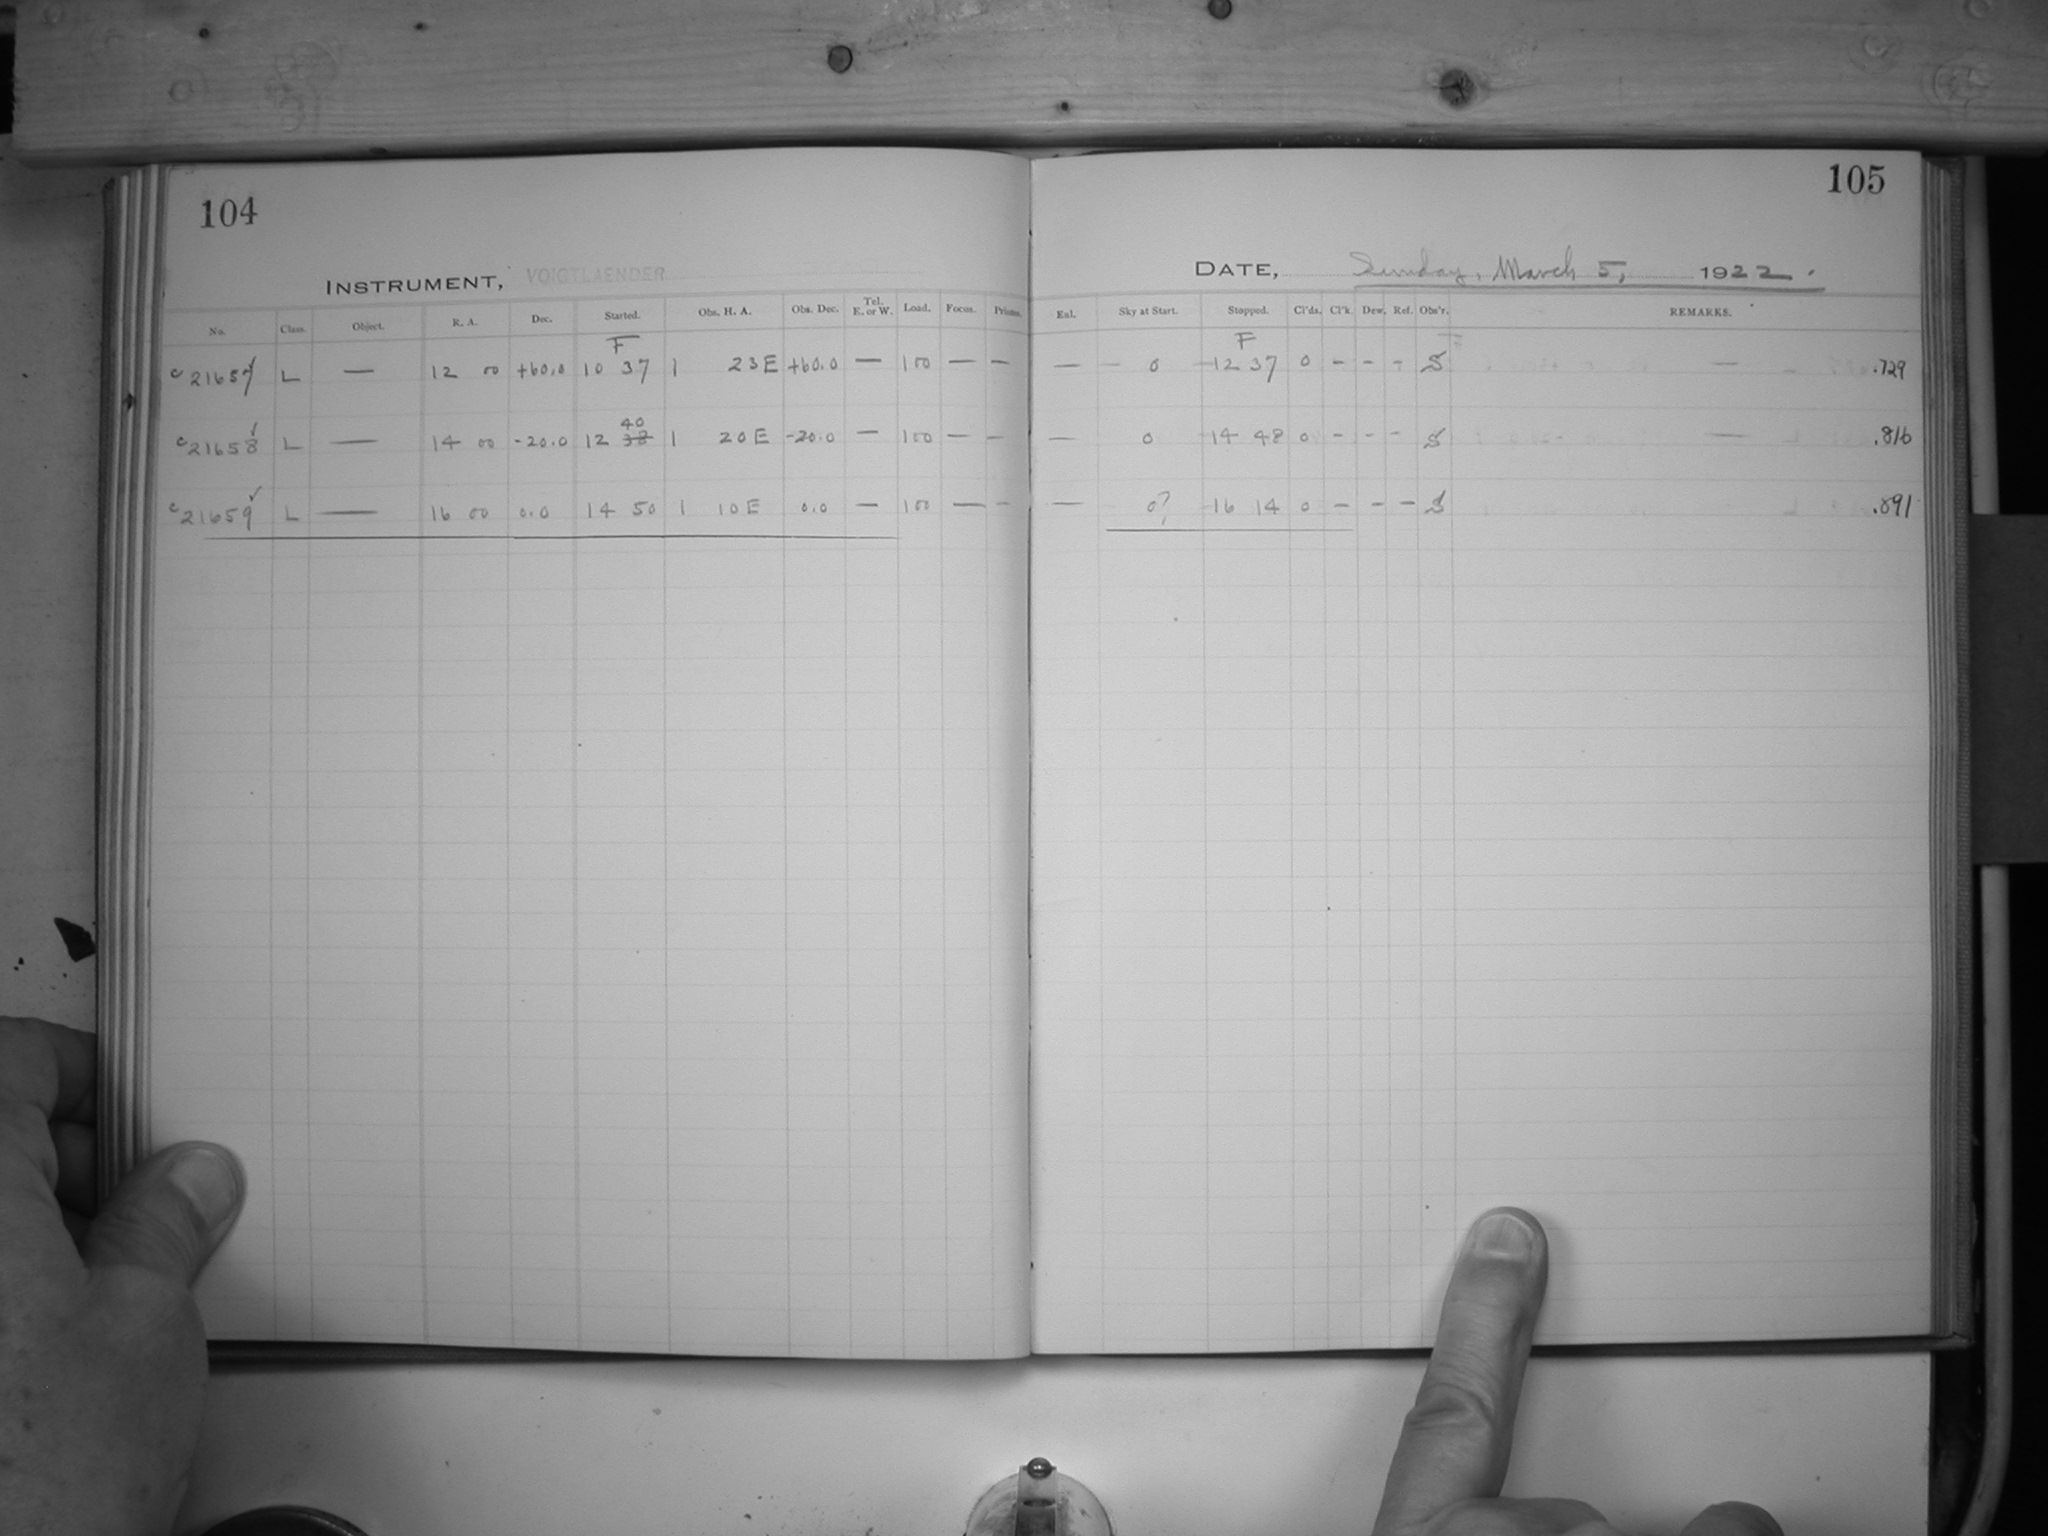 104
INSTRUMENT, VOIGTLAENDER
No. Class. Object. R. A. Dec. Started. Obs. H. A. Obs. Dec. Tel. E. or W. Load. Focus. Prisms.
F
c 21657 L — 12 00 +60.0 10 37 1 23 E +60.0 — 100 — —
40
c 21658 L — 14 00 -20.0 12 38 1 20 E -20.0 — 100 — —
c 21659 L — 16 00 0.0 14 50 1 10 E 0.0 — 100 — —
105
DATE, Sunday, March 5, 1922.
Enl. Sky at Start. Stopped. Cl'ds. Cl'k. Dew. Ref. Obs'r. REMARKS.
F
— 0 12 37 0 - - - S — .729
— 0 14 48 0 - - - S — .816
— 0? 16 14 0 - - - S .891